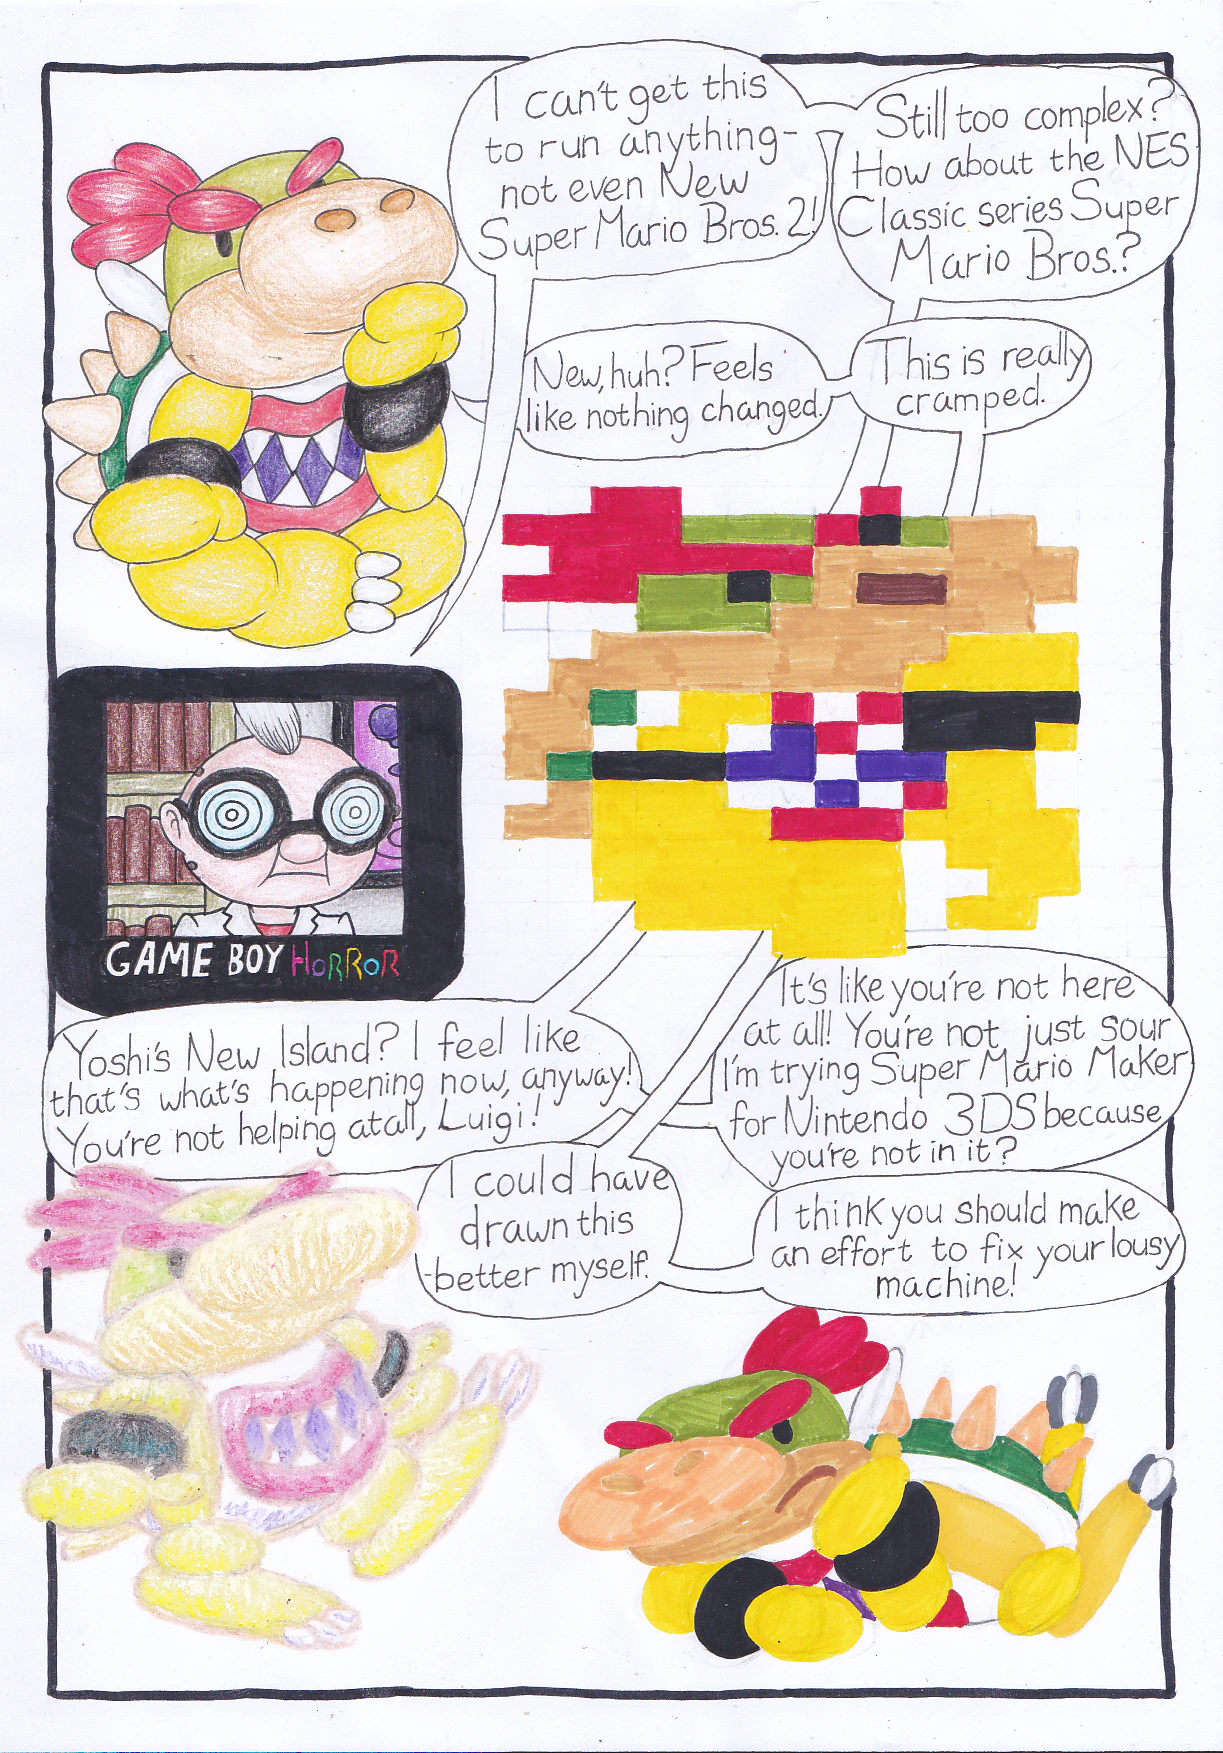 I can't get this
to run anything-
not even New
Super Mario Bros. 2!
Still too complex?
How about the NES
Classic series Super
Mario Bros.?
New, huh? Feels
like nothing changed.
This is really
cramped.
GAME BOY HORROR
Yoshi's New Island? I feel like
that's what's happening now, anyway!
You're not helping at all, Luigi!
It's like you're not here
at all! You're not just sour
I'm trying Super Mario Maker
for Nintendo 3DS because
you're not in it?
I could have
drawn this
better myself.
I think you should make
an effort to fix your lousy
machine!